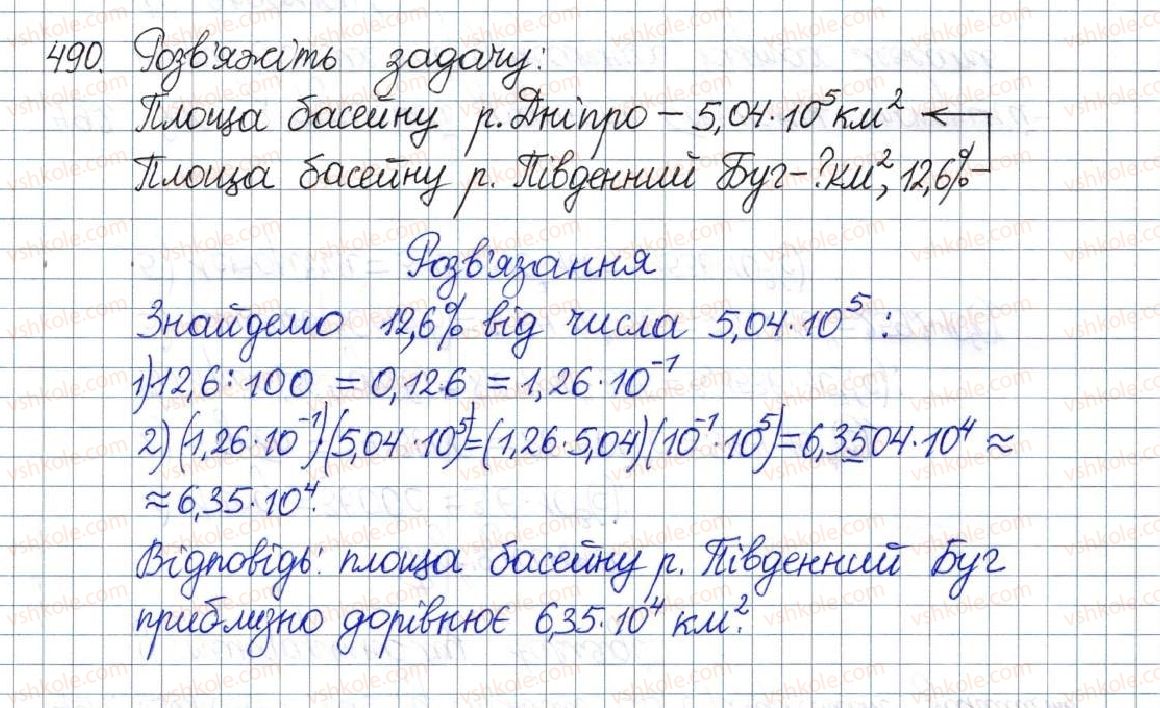 490. Розв'яжіть задачу:
Площа басейну р. Дніпро – 5,04·10⁵ км² ←
Площа басейну р. Південний Буг – ? км², 12,6%
Розв'язання
Знайдемо 12,6% від числа 5,04·10⁵ :
1) 12,6 : 100 = 0,126 = 1,26·10⁻¹
2) (1,26·10⁻¹)·(5,04·10⁵) = (1,26·5,04)(10⁻¹·10⁵) = 6,3504·10⁴ ≈
≈ 6,35·10⁴.
Відповідь: площа басейну р. Південний Буг
приблизно дорівнює 6,35·10⁴ км².